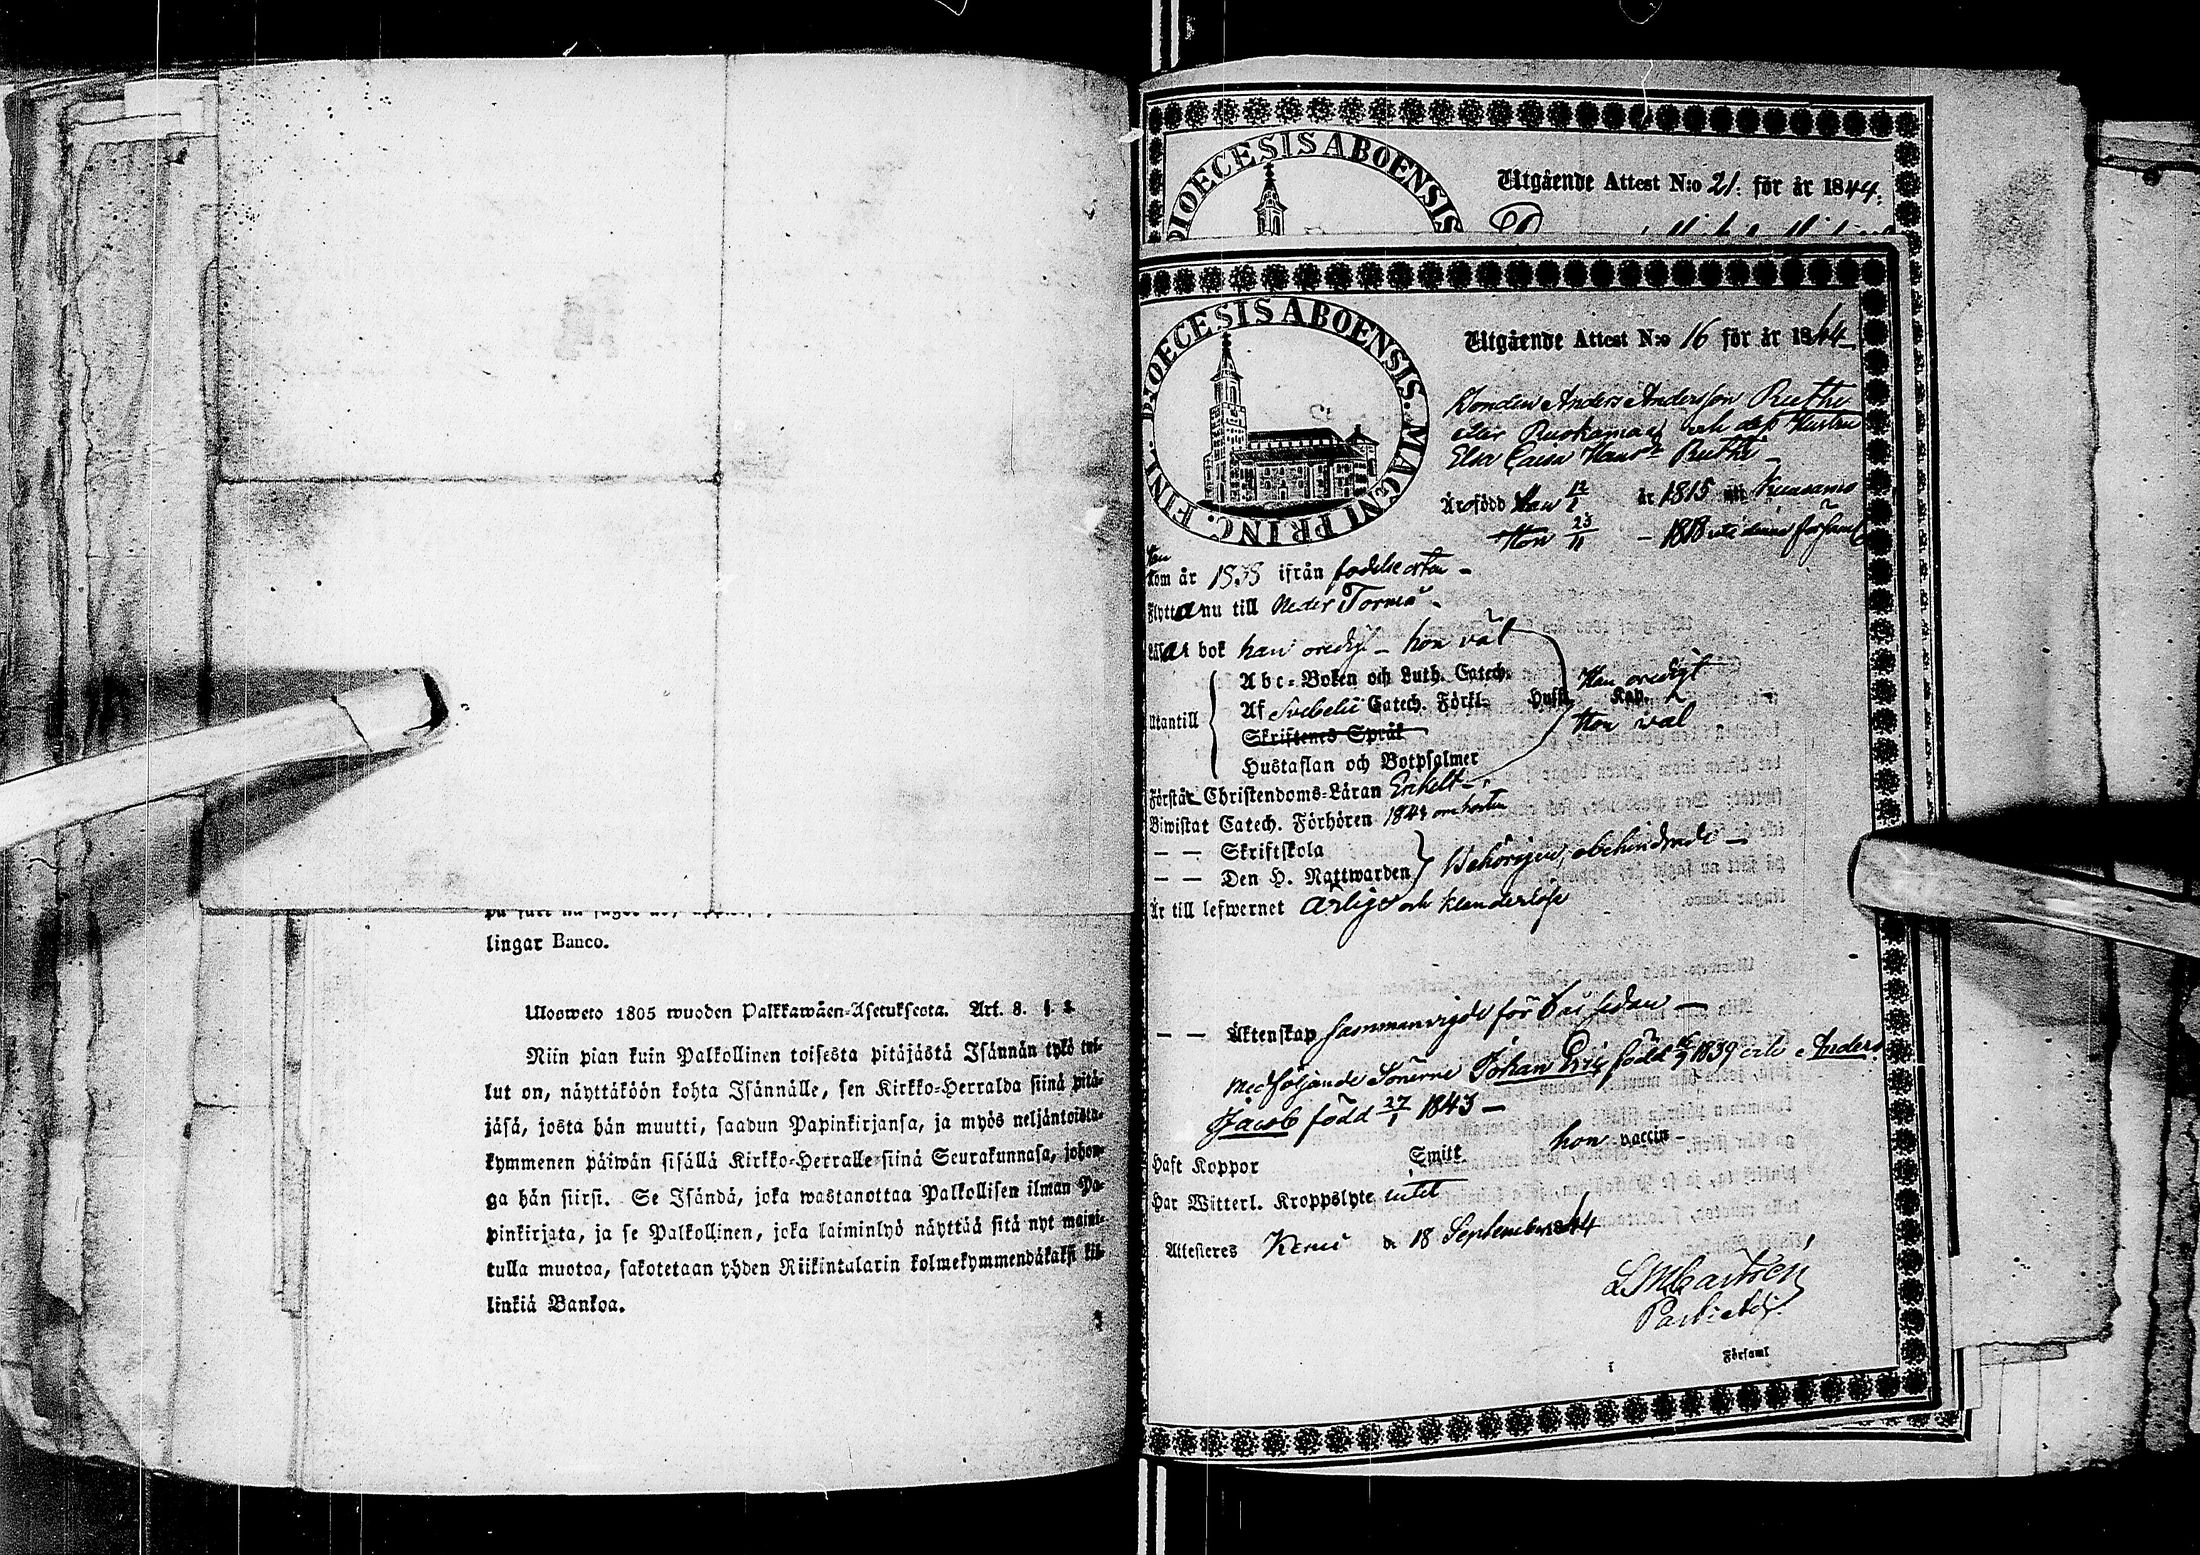 lingar Banco.
Ulosweto 1805 wuoden Palkkawäen-Asetuksesta. Art. 8. §. 2.
Niin pian kuin Palkollinen toisesta pitäjästä Isännän tykö tul-
lut on, näyttäköön kohta Isännälle, sen Kirkko-Herralda siinä pitä-
jäsä, josta hän muutti, saadun Papinkirjansa, ja myös neljäntoista-
kymmenen päiwän sisällä Kirkko-Herralle siinä Seurakunnasa, johon-
ga hän siirsi. Se Isändä, joka wastanottaa Palkollisen ilman Pa-
pinkirjata, ja se Palkollinen, joka laiminlyö näyttää sitä nyt maini-
tulla muotoa, sakotetaan yhden Riikintalarin kolmekymmendäkaksi kil-
linkiä Bankoa.
DIOECESIS ABOENSIS
Utgående Attest N:o 21. för år 1844.
DIOECESIS ABOENSIS. MAGNI PRINC. FINL.
Utgående Attest N:o 16 för år 1844
Bonden Anders Andersson Ruthi
eller Ruokamaa och dess Hustru
Elsa Caisa Hansdr Ruthi
Är född Han 12/1 år 1815 uti Kuusamo
Hon 23/11 - 1818 uti denna församl
Han
kom år 1838 ifrån födelseorten -
Flytta nu till Neder Torneå.
Läsa i bok han oredigt - hon väl
Utantill
Abc-Boken och Luth. Catech.
Af Svebelii Catech. Förkl. Hust. Kap.
Han oredigt
Hon väl
Skriftenes Språk
Hustaflan och Botpsalmer
Förstår Christendoms-Läran Enkelt
Biwistat Catech. Förhören 1844
— — Skriftskola
— — Den H. Nattwarden Behörigen, obehindrade -
Är till lefwernet ärlige och klanderlöse
— — Äktenskap sammanvigde för 6 år sedan —
Medföljande Sönerne Johan Eric född 1839 och Anders
Jacob född 27/1 1843 -
Haft Koppor Smitt hon vaccin -
Har Witterl. Kroppslyte intet
Attesteres Kemi d. 18 September 1844
L M Castrén
Past: Adj.
i Församl